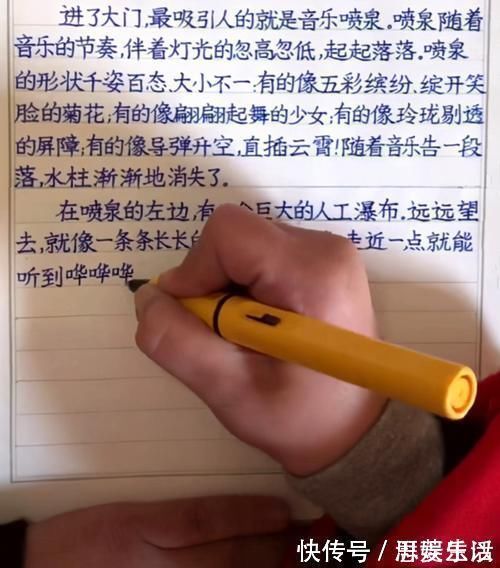 进了大门,最吸引人的就是音乐喷泉。喷泉随着
音乐的节奏,伴着灯光的忽高忽低,起起落落。喷泉
的形状千姿百态、大小不一:有的像五彩缤纷、绽开笑
脸的菊花;有的像翩翩起舞的少女;有的像玲珑剔透
的屏障;有的像导弹升空,直插云霄!随着音乐告一段
落,水柱渐渐地消失了。
在喷泉的左边,有 巨大的人工瀑布。远远望
去,就像一条条长长的 走近一点就能
听到哗哗哗
快传号/